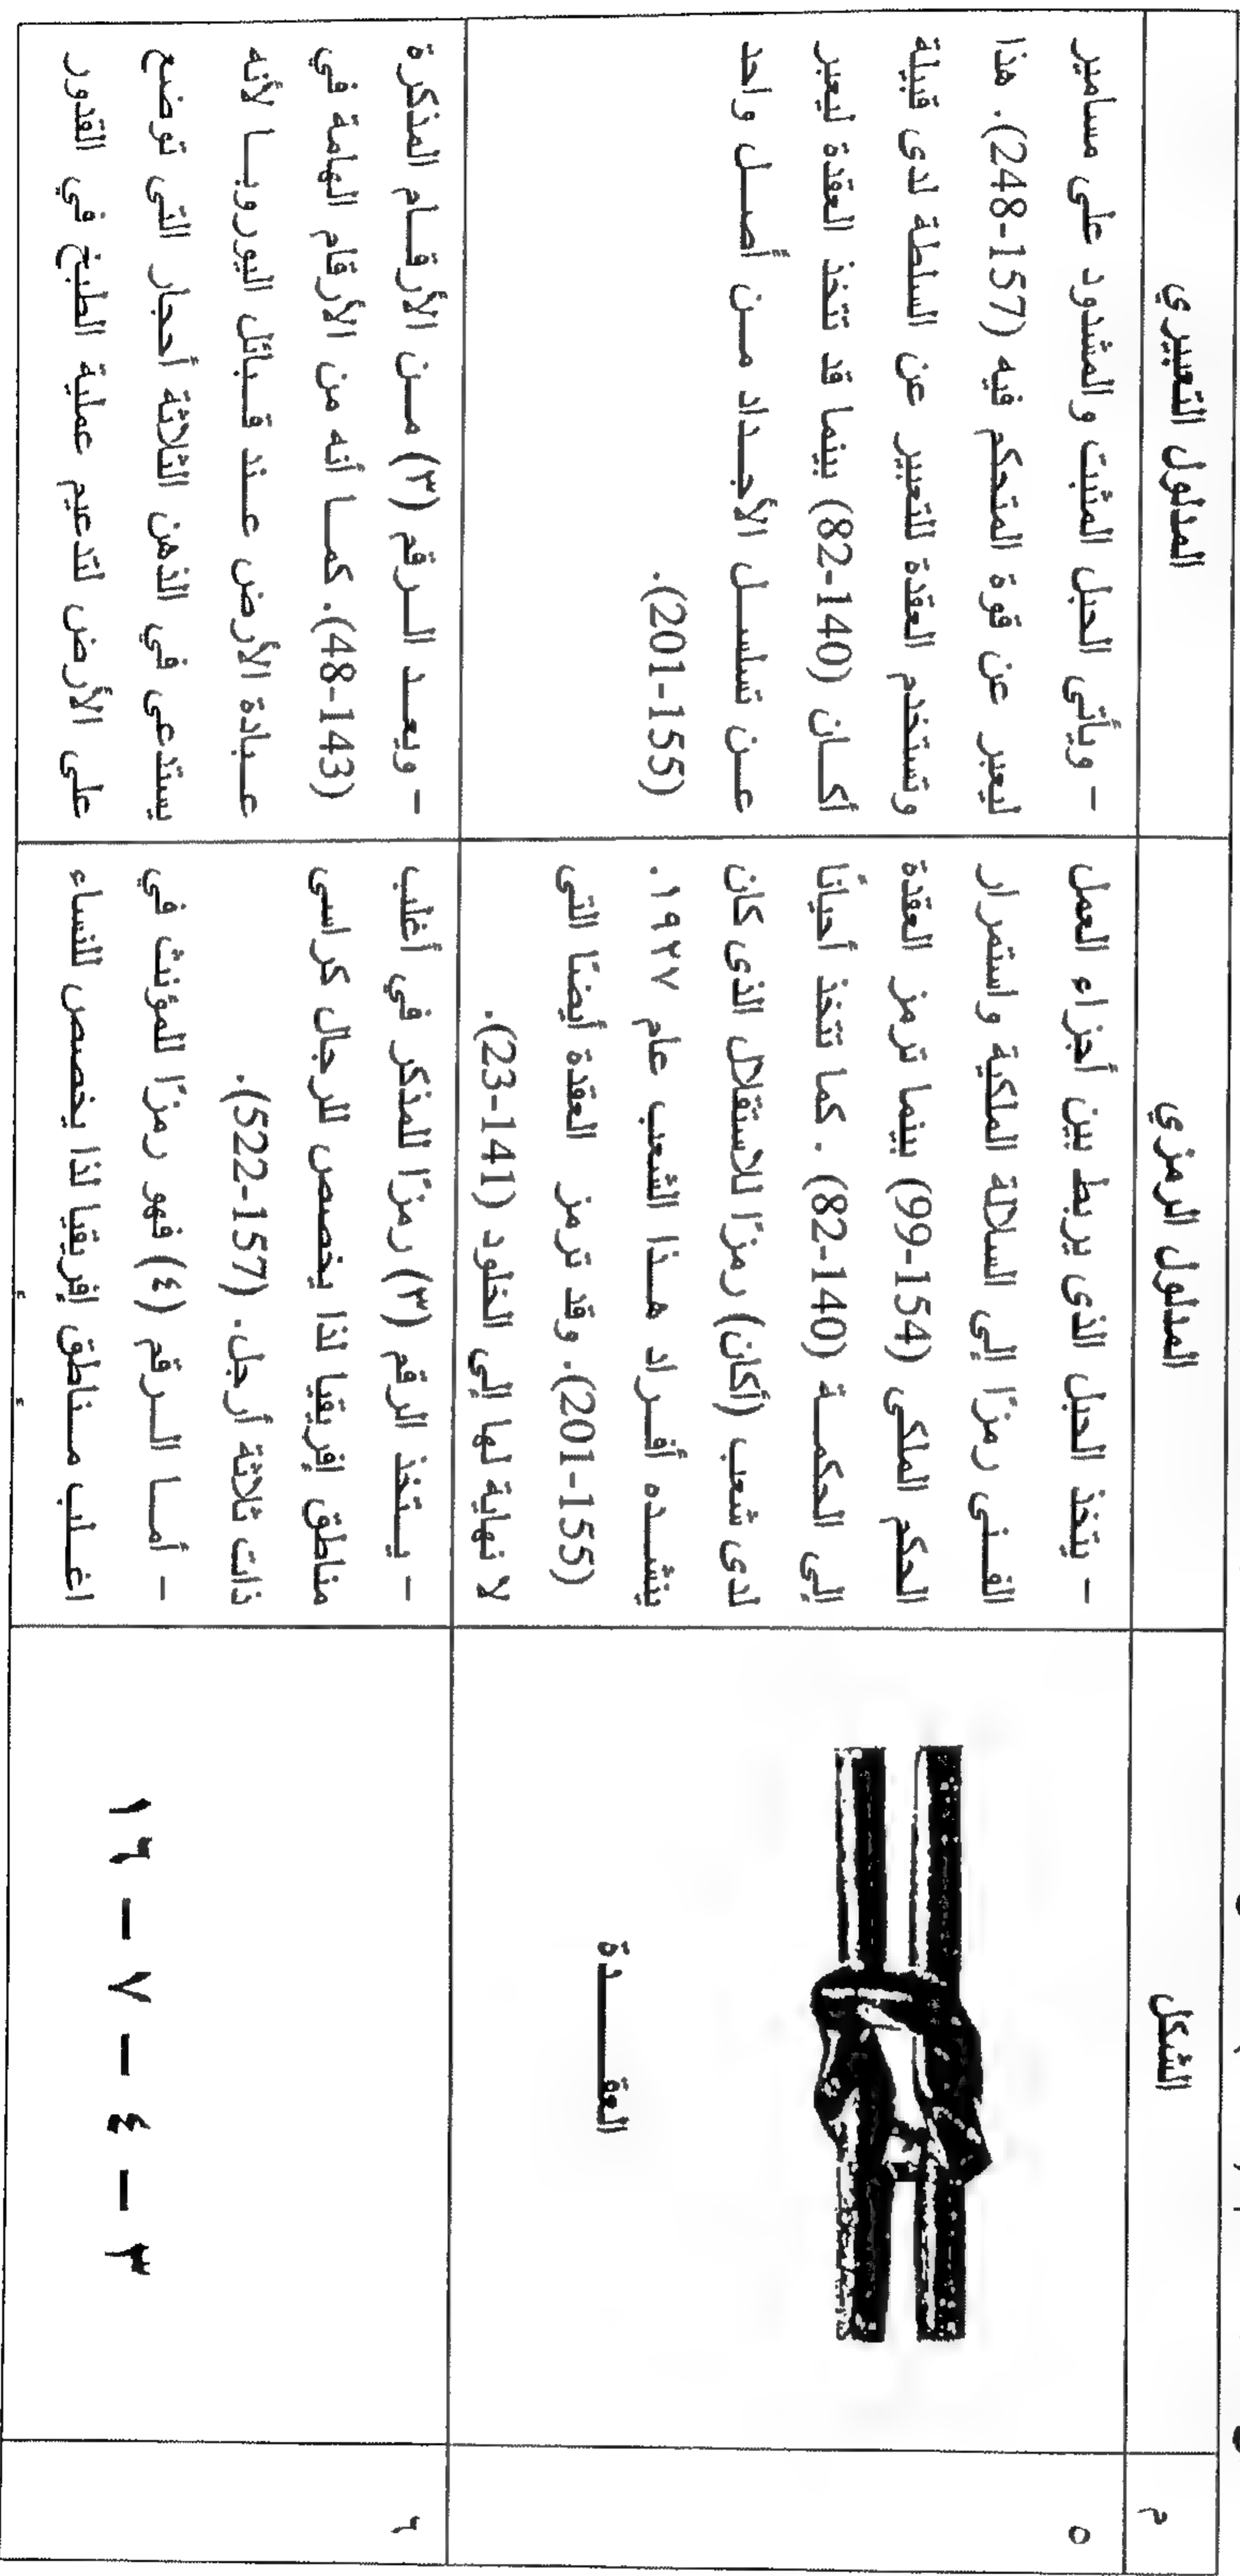 م
الشكل
المدلول الرمزي
المدلول التعبيري
٥
العقـــــدة
– يتخذ الحبل الذى يربط بين أجزاء العمل
الفـنى رمزًا إلى السلالة الملكية واستمرار
الحكم الملكى (154-99) بينما ترمز العقدة
إلى الحكمــة (140-82) . كما تتخذ أحيانًا
لدى شعب (أكان) رمزًا للاستقلال الذى كان
ينشــده أفــراد هــذا الشعب عام ١٩٢٧.
(155-201). وقد ترمز العقدة أيضًا التى
لا نهاية لها إلى الخلود (141-23).
– ويأتى الحبل المثبت والمشدود على مسامير
ليعبر عن قوة المتحكم فيه (157-248). هذا
وتستخدم العقدة للتعبير عن السلطة لدى قبيلة
أكــان (140-82) بينما قد تتخذ العقدة ليعبر
عــن تسلســل الأجــداد مــن أصــل واحد
(155-201).
٦
٣ – ٤ – ٧ – ١٦
– يــتخذ الرقم (٣) رمزًا للمذكر في أغلب
مناطق إفريقيا لذا يخصص للرجال كراسى
ذات ثلاثة أرجل. (157-522).
– أمــا الــرقم (٤) فهو رمزًا للمؤنث في
اغــلب مــناطق إفريقيا لذا يخصص للنساء
– ويعــد الــرقم (٣) مــن الأرقــام المذكرة
(143-48). كمــا أنه من الأرقام الهامة في
عــبادة الأرض عــند قــبائل اليوروبــا لأنه
يستدعى في الذهن الثلاثة أحجار التى توضع
على الأرض لتدعيم عملية الطبخ في القدور